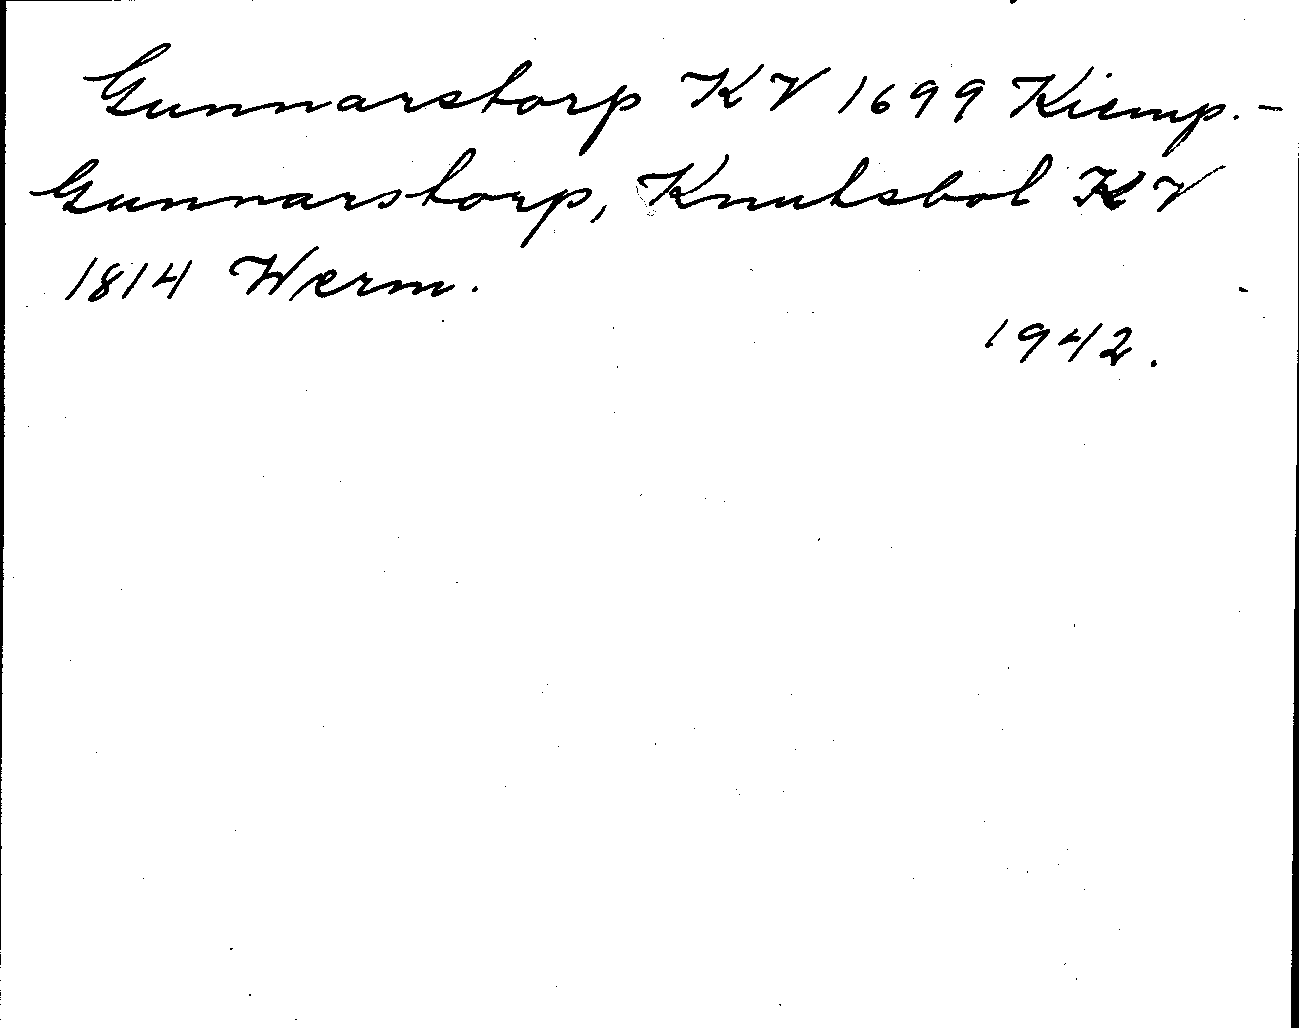 Gunnarstorp KV 1699 Kiemp. -
Gunnarstorp, Knutsbol KV
1814 Werm.
1942.